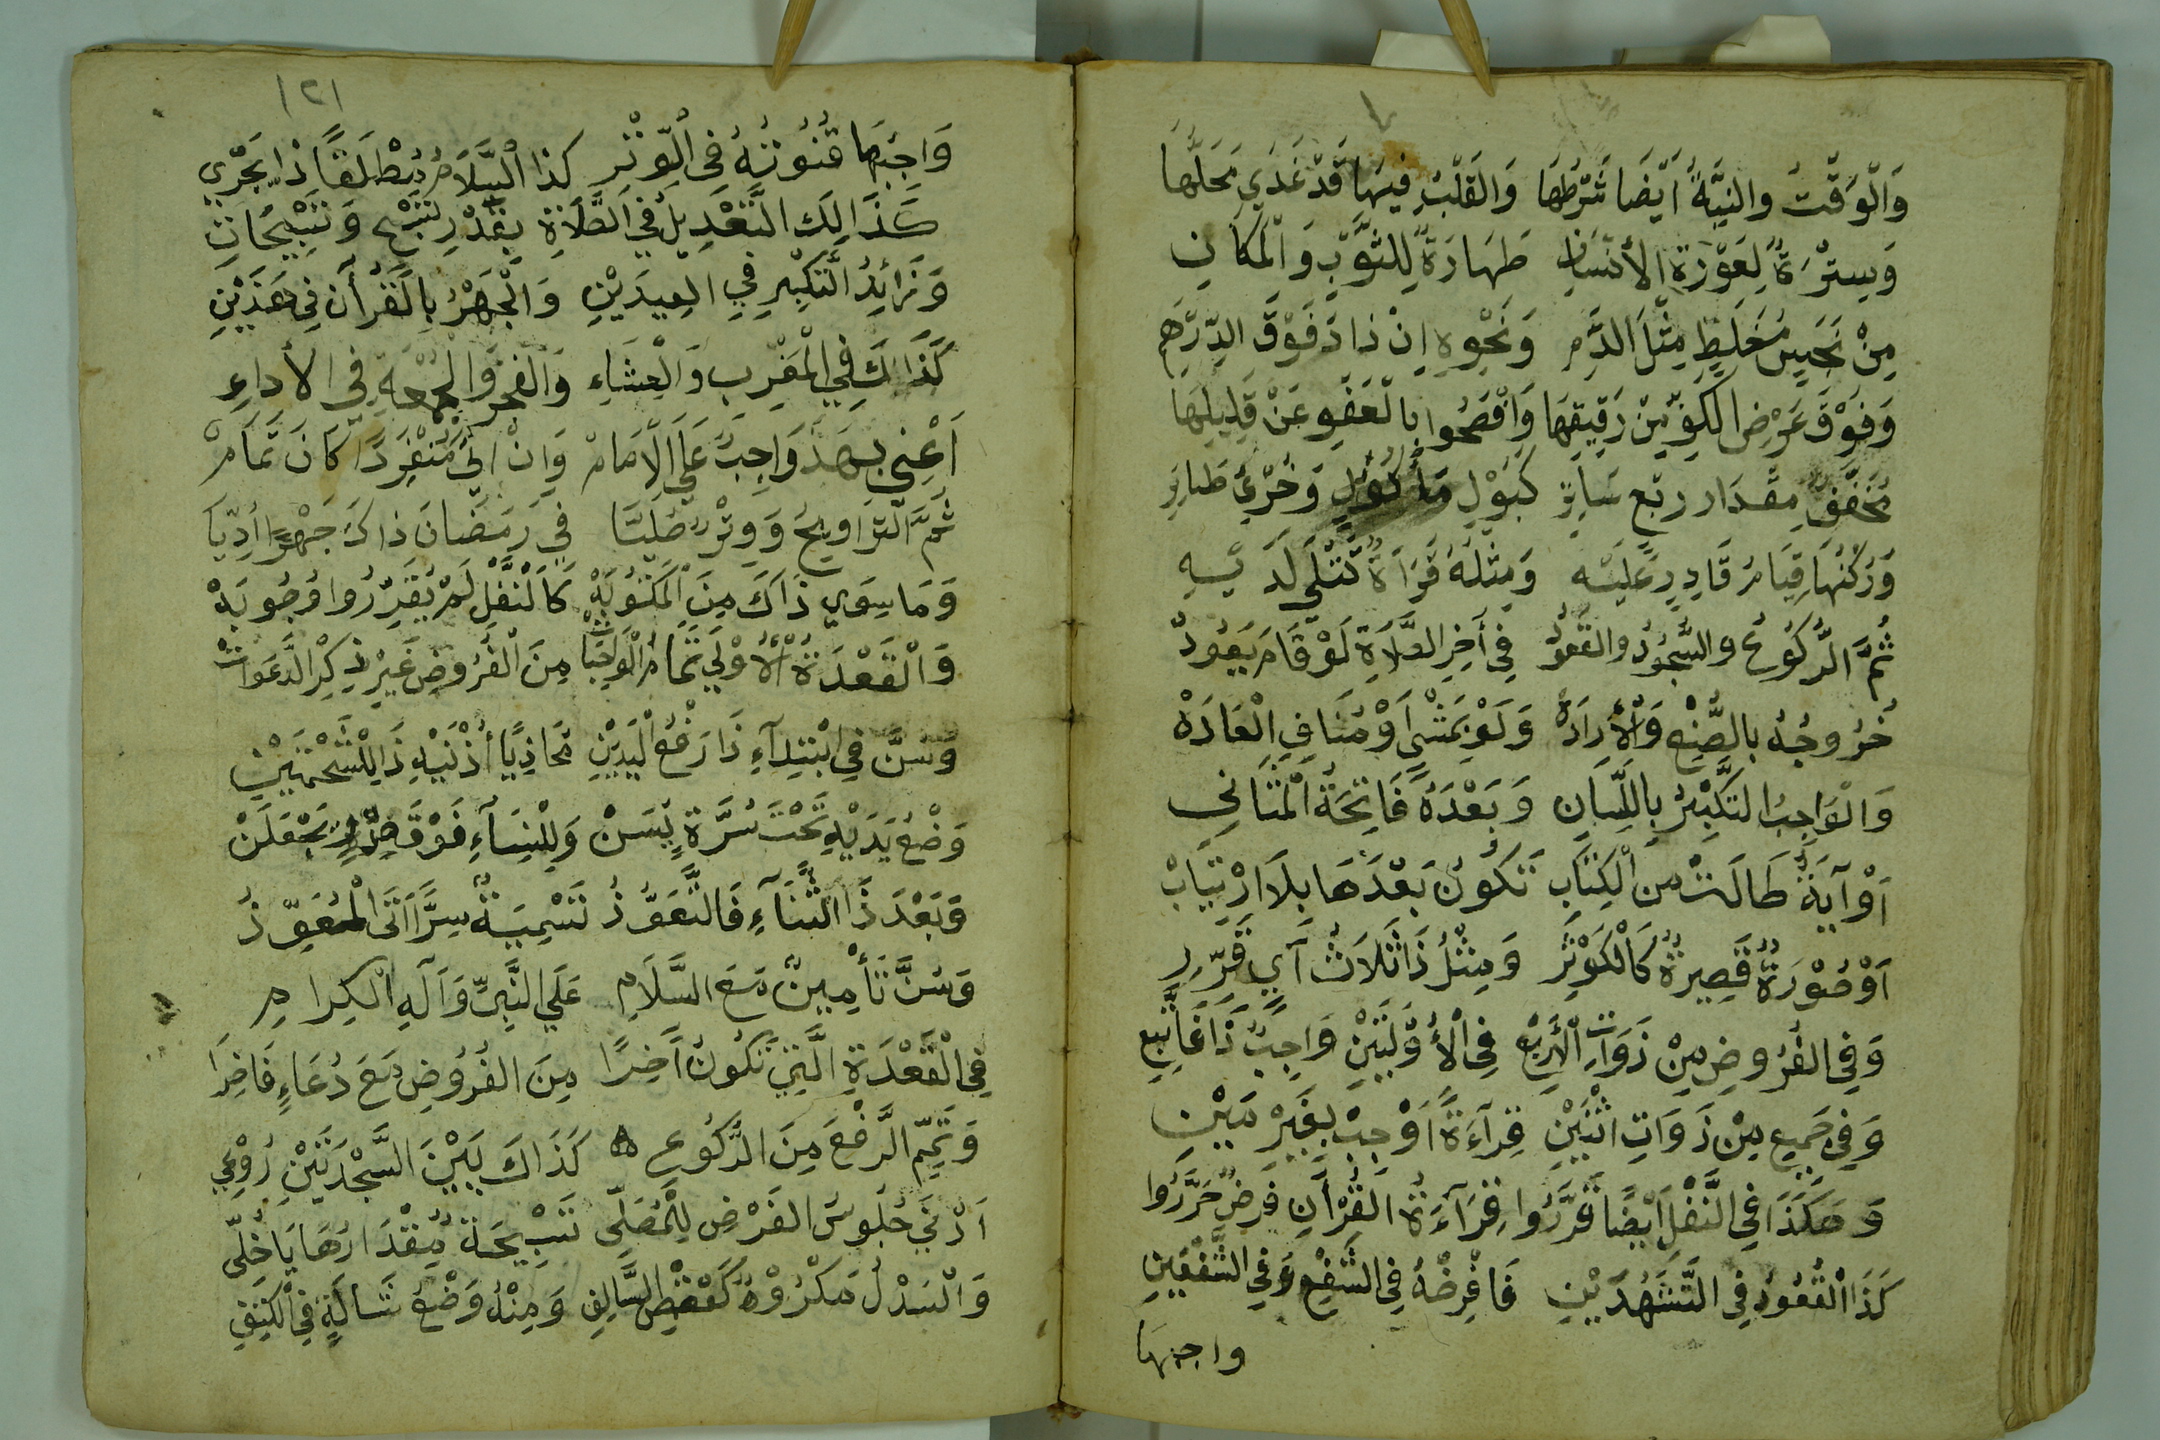 وَالْوَقْتُ والنِيَّةُ اَيْضَا شَرْطُهَا وَالقَلْبُ فِيهَا قَدْ غَدَي مَحَلُّهَا
وَسِتْرَةٌ لِعَوْرَةِ الأنسَانِ طَهَارَةٌ لِلثَّوْبِ وَالْمَكَانِ
مِنْ نَجَسٍ مُغَلَظٍ مِثْلَ الدَّمِ وَنَحْوِهِ اِنْ ذادَ فَوْقَ الدِّرْهَمِ
وَفَوْقَ عَرْضِ الكَفِّ مِنْ رَقِيقِهَا وَافْصَحُوا بِالْعَفْوِ عَنْ قَلِيلِهَا
مُخَفَّفٌ مِقْدَار ربْع سَايِرِ كَبَوْلِ مَأْكُوْلٍ وَخُرْئِ طَايرِ
وَرُكْنُهَا قِيَامُ قَادِرٍ عَلَيْه وَمِثْلُهُ قَرَاةٌ تُتْلَي لَدَيْهِ
ثُمَّ الرُّكُوعُ والسُّجُوْدُ والقُعُوْدُ فِي أخِرِ الصَّلَاةِ لَوْ قَامَ يَعُوْدْ
خُرُوجُهُ بِالصُّنْعِ وَالْأرَادَهْ وَلَوْ بِمَشْيٍ اَوْ مُنَافِي الْعَادَهْ
وَالْوَاجِبُ التَكْبِيْرُ بِاللِّسَانِ وَبَعْدَهُ فَاتِحَةُ الْمَثَانِي
اَوْ آيَةٌ طَالَتْ مِن الْكِتَابِ تَكُونُ بَعْدَهَا بِلَا ارْتِيَابْ
اَوْ صُوْرَةٌ قَصِيرةٌ كَالْكَوْثَرِ وَمِثْلُ ذَا ثَلَاثُ آيٍ قَرِّرِ
وَفِي الفُرُوضِ مِنْ ذَوَاتِ الْأَرْبَعِ فِي الْأُوْلَيَيْنِ وَاجِبٌ ذَا فَاتْبَعِ
وَفِي جَمِيعٍ مِنْ ذَوَاتِ اثْنَيْنِ قِرآءَةً اَوْجِبْ بِغَيْرِ مَيْنِ
وَهَكَذَا فِي النَّفْلِ اَيْضًا قَرَّرُوا قِرَآءَةُ القُرْأَنِ فَرْضٌ حَرَّرُوا
كَذَا الْقُعُودُ فِي التَّشَهُدَيْنِ فَافْرِضْهُ فِي الشَّفْعِ وَفِي الشَّفْعَيْنِ
واجبها
١٢١
وَاجُبُهَا قُنُوتُهُ فِي الْوِتْرِ كذا السَّلَامُ مُطْلَقًا ذا يَجْرِي
كَذَالِكَ التَّعْدِيلُ فِي الصَّلَاةِ بِقَدْرِ تَسْبِيحٍ وَتَسْبِيحَاتِ
وَزَائِدُ التَّكْبِيْرِ فِي العِيدَيْنِ وَالْجَهْرُ بِالْقُرْأَنِ فِي هَذَيْنِ
كَذَاكَ فِي الْمَغْرِبِ وَالْعِشَاءِ وَالفَجْرِ وَالجُمُعَةِ فِي الأداءِ
اَعْنِي بِهَذَ وَاجِبٌ عَلَي الْاِمَامْ وَاِنْ اَتَى مُنْفَرِدًا كَانَ تَمَامْ
ثُمَّ التَّرَاوِيحُ وَوِتْرٌ صُلِّيَا فِي رَمَضَانَ ذاكَ جَهْرًا اُدِّيَا
وَمَا سِوَي ذَاكَ مِنَ الْمَكْتُوبَهْ كَالنَّفْلِ لَمْ يُقَرِّرُوا وُجُوبَهْ
وَالْقَعْدَةُ الْأُوْلَي تَمَامُ الْوَاجِبَاتْ مِنَ الْفُرُوضِ غَيْرَ ذِكْرِ الدَّعَوَاتْ
وَسُنَّ فِي ابْتِدآءِ ذَا رَفْعُ الْيَدَيْنِ مُحَاذِيًا أُذْنَيْهِ ذَا لِلشَّحْمَتَيْنْ
وَضْعُ يَدَيْهِ تَحْتَ سُرَّةٍ يُسَنْ وَلِلْنِسَآءِ فَوْقَ صَدْرٍ يَجْعَلَنْ
وَبَعْدَ ذَا الثَّنَآءِ فَالتَّعَوُّذُ تَسْمِيَةٌ سِرًّا اَتَى الْمُعَوِّذُ
وَسُنَّ تَأْمِينٌ مَعَ السَّلَامِ عَلَي النَّبِيِّ وَآلِهِ الْكِرامِ
فِي الْقَعْدَةِ الَّتِي تَكُونُ آخِرًا مِنَ الفُرُوضِ مَعَ دُعَاءٍ فَاخِرَا
وَتَمِّمِ الرَّفْعَ مِنَ الرُّكُوعِ ٥ كَذَاكَ بَيْنَ السَّجْدَتَيْنِ رُوْعِي
اَدْنَي جُلُوسِ الفَرْضِ لِلْمُصَلِّي تَسْبِيحَةٌ مِقْدَارُهَا يَا خُلِّي
وَالْسَدْلُ مَكْرُوْهٌ كَعَقْصِ السَّالِفِ وَمِنْهُ وَضْعُ شَالَةٍ فِي الْكَتِفِ